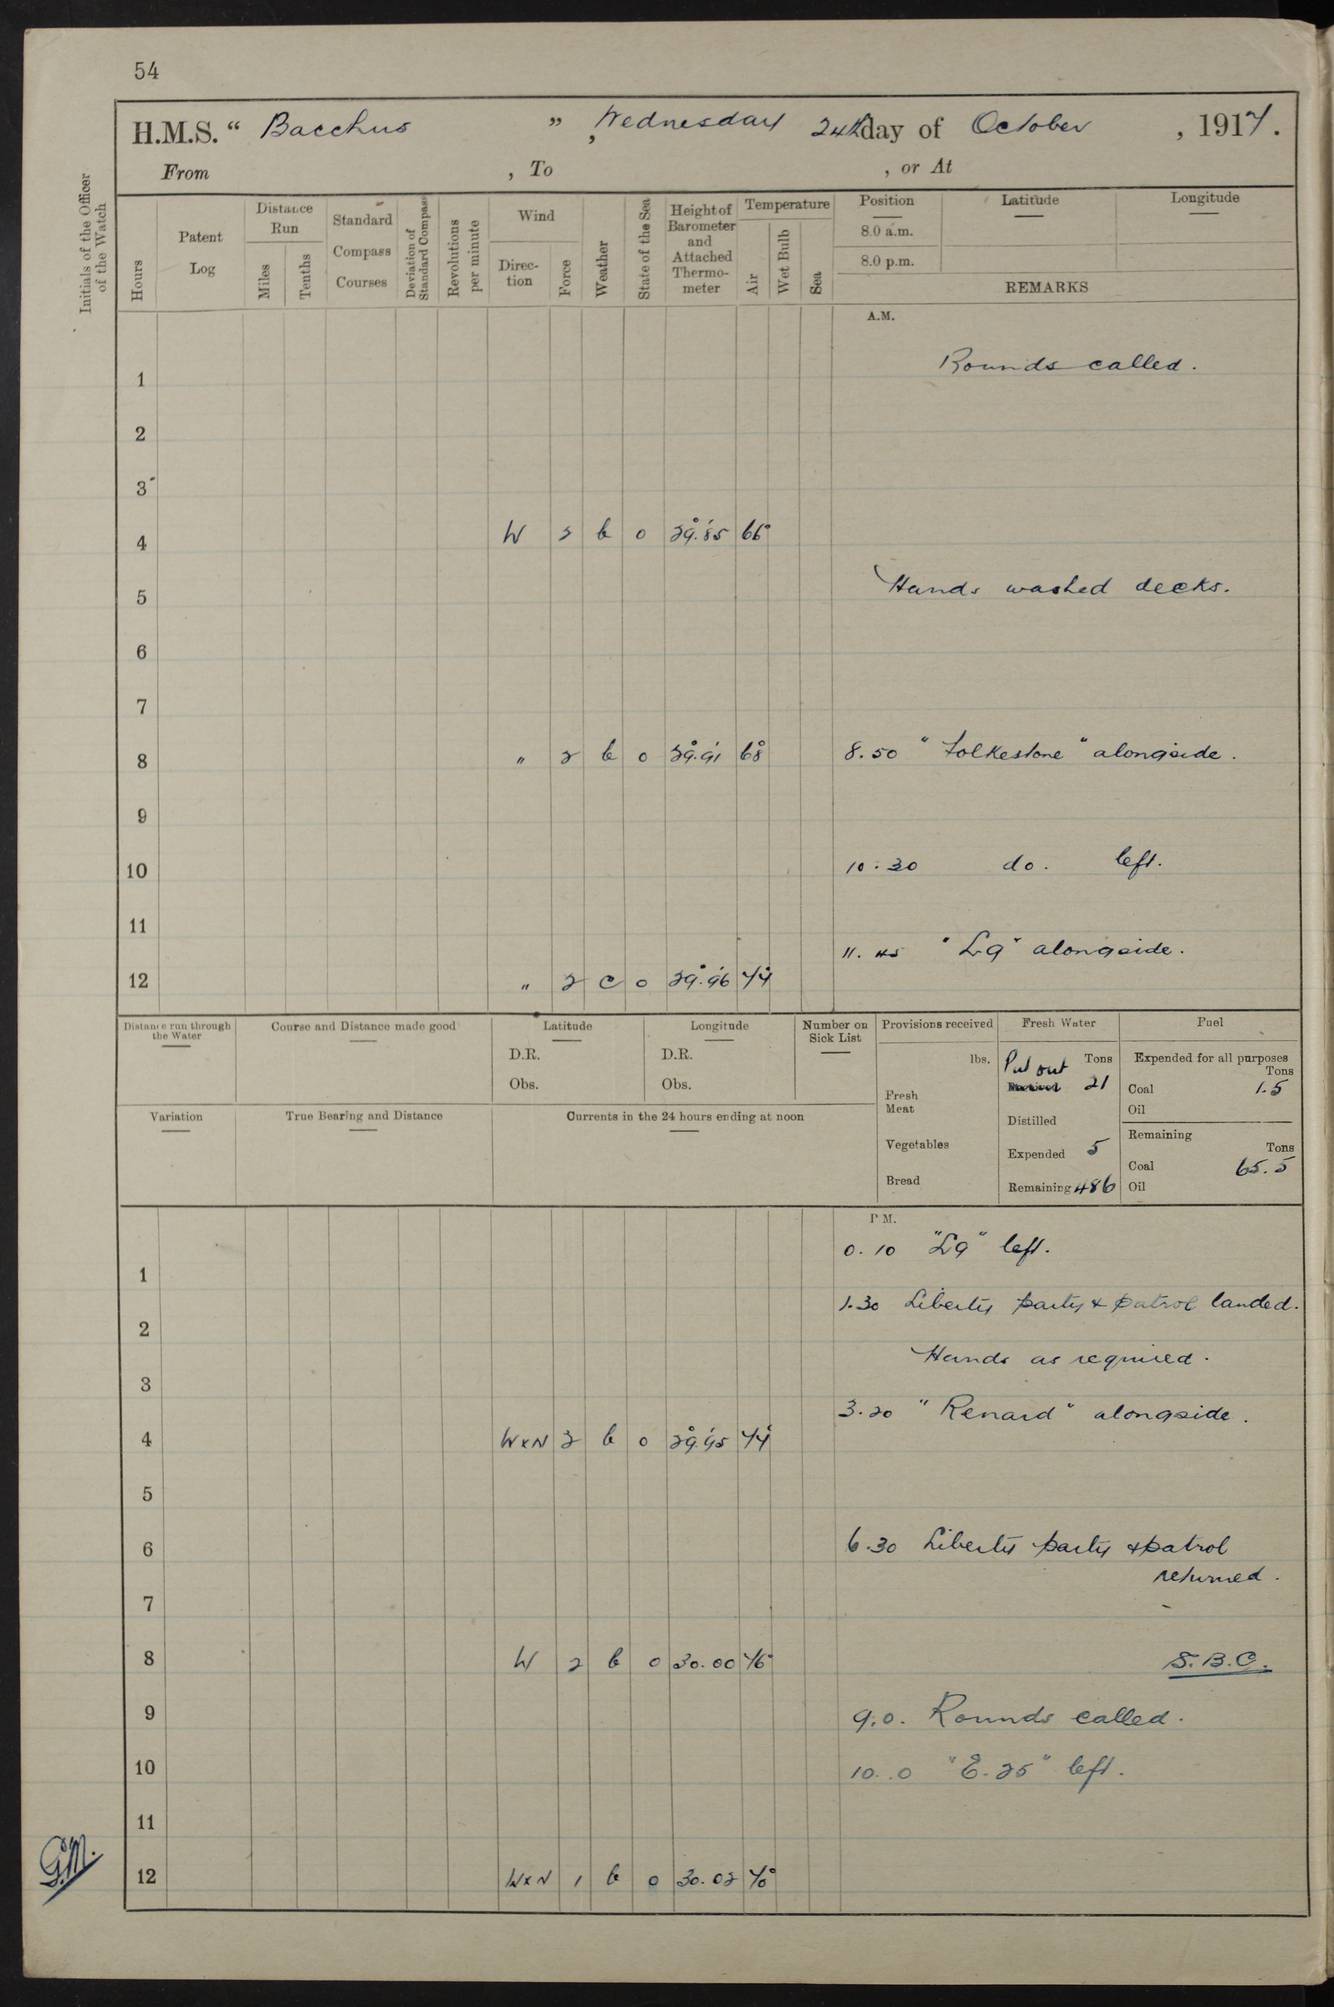 54
H.M.S. “ Bacchus ” , Wednesday 24th day of October , 1917.
From , To , or At
Initials of the Officer of the Watch
Hours
Patent Log
Distance Run
Miles
Tenths
Standard Compass Courses
Deviation of Standard Compass
Revolutions per minute
Wind
Direction
Force
Weather
State of the Sea
Height of Barometer and Attached Thermometer
Temperature
Air
Wet Bulb
Sea
Position Latitude Longitude
8.0 a.m.
8.0 p.m.
REMARKS
A.M.
Rounds called.
1
2
3
4 W 2 b 0 29.85 66°
Hands washed decks.
5
6
7
8 " 2 b 0 29.91 68° 8.50 "Folkestone" alongside.
9
10 10.30 do. left.
11
11.45 "L9" alongside.
12 " 2 c 0 29.96 74°
Distance run through the Water
Course and Distance made good
Latitude
D.R.
Obs.
Longitude
D.R.
Obs.
Number on Sick List
Provisions received
lbs.
Fresh Meat
Vegetables
Bread
Fresh Water
Tons
Put out 21
Distilled
Expended 5
Remaining 486
Fuel
Expended for all purposes
Tons
Coal 1.5
Oil
Remaining
Tons
Coal 65.5
Oil
Variation
True Bearing and Distance
Currents in the 24 hours ending at noon
P.M.
0.10 "L9" left.
1
1.30 Liberty party & patrol landed.
2
Hands as required.
3
3.20 "Renard" alongside.
4 WxN 2 b 0 29.95 74°
5
6 6.30 Liberty party & patrol
returned.
7
8 W 2 b 0 30.00 76° S.B.C.
9 9.0. Rounds called.
10 10.0 "E.25" left.
11
G.M.
12 WxN 1 b 0 30.02 70°